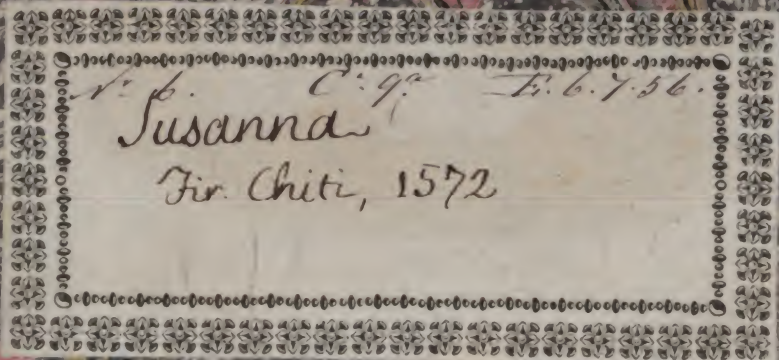 N.º 6. C.ª 9.ª E.6.7.56.
Susanna
Fir. Chiti, 1572